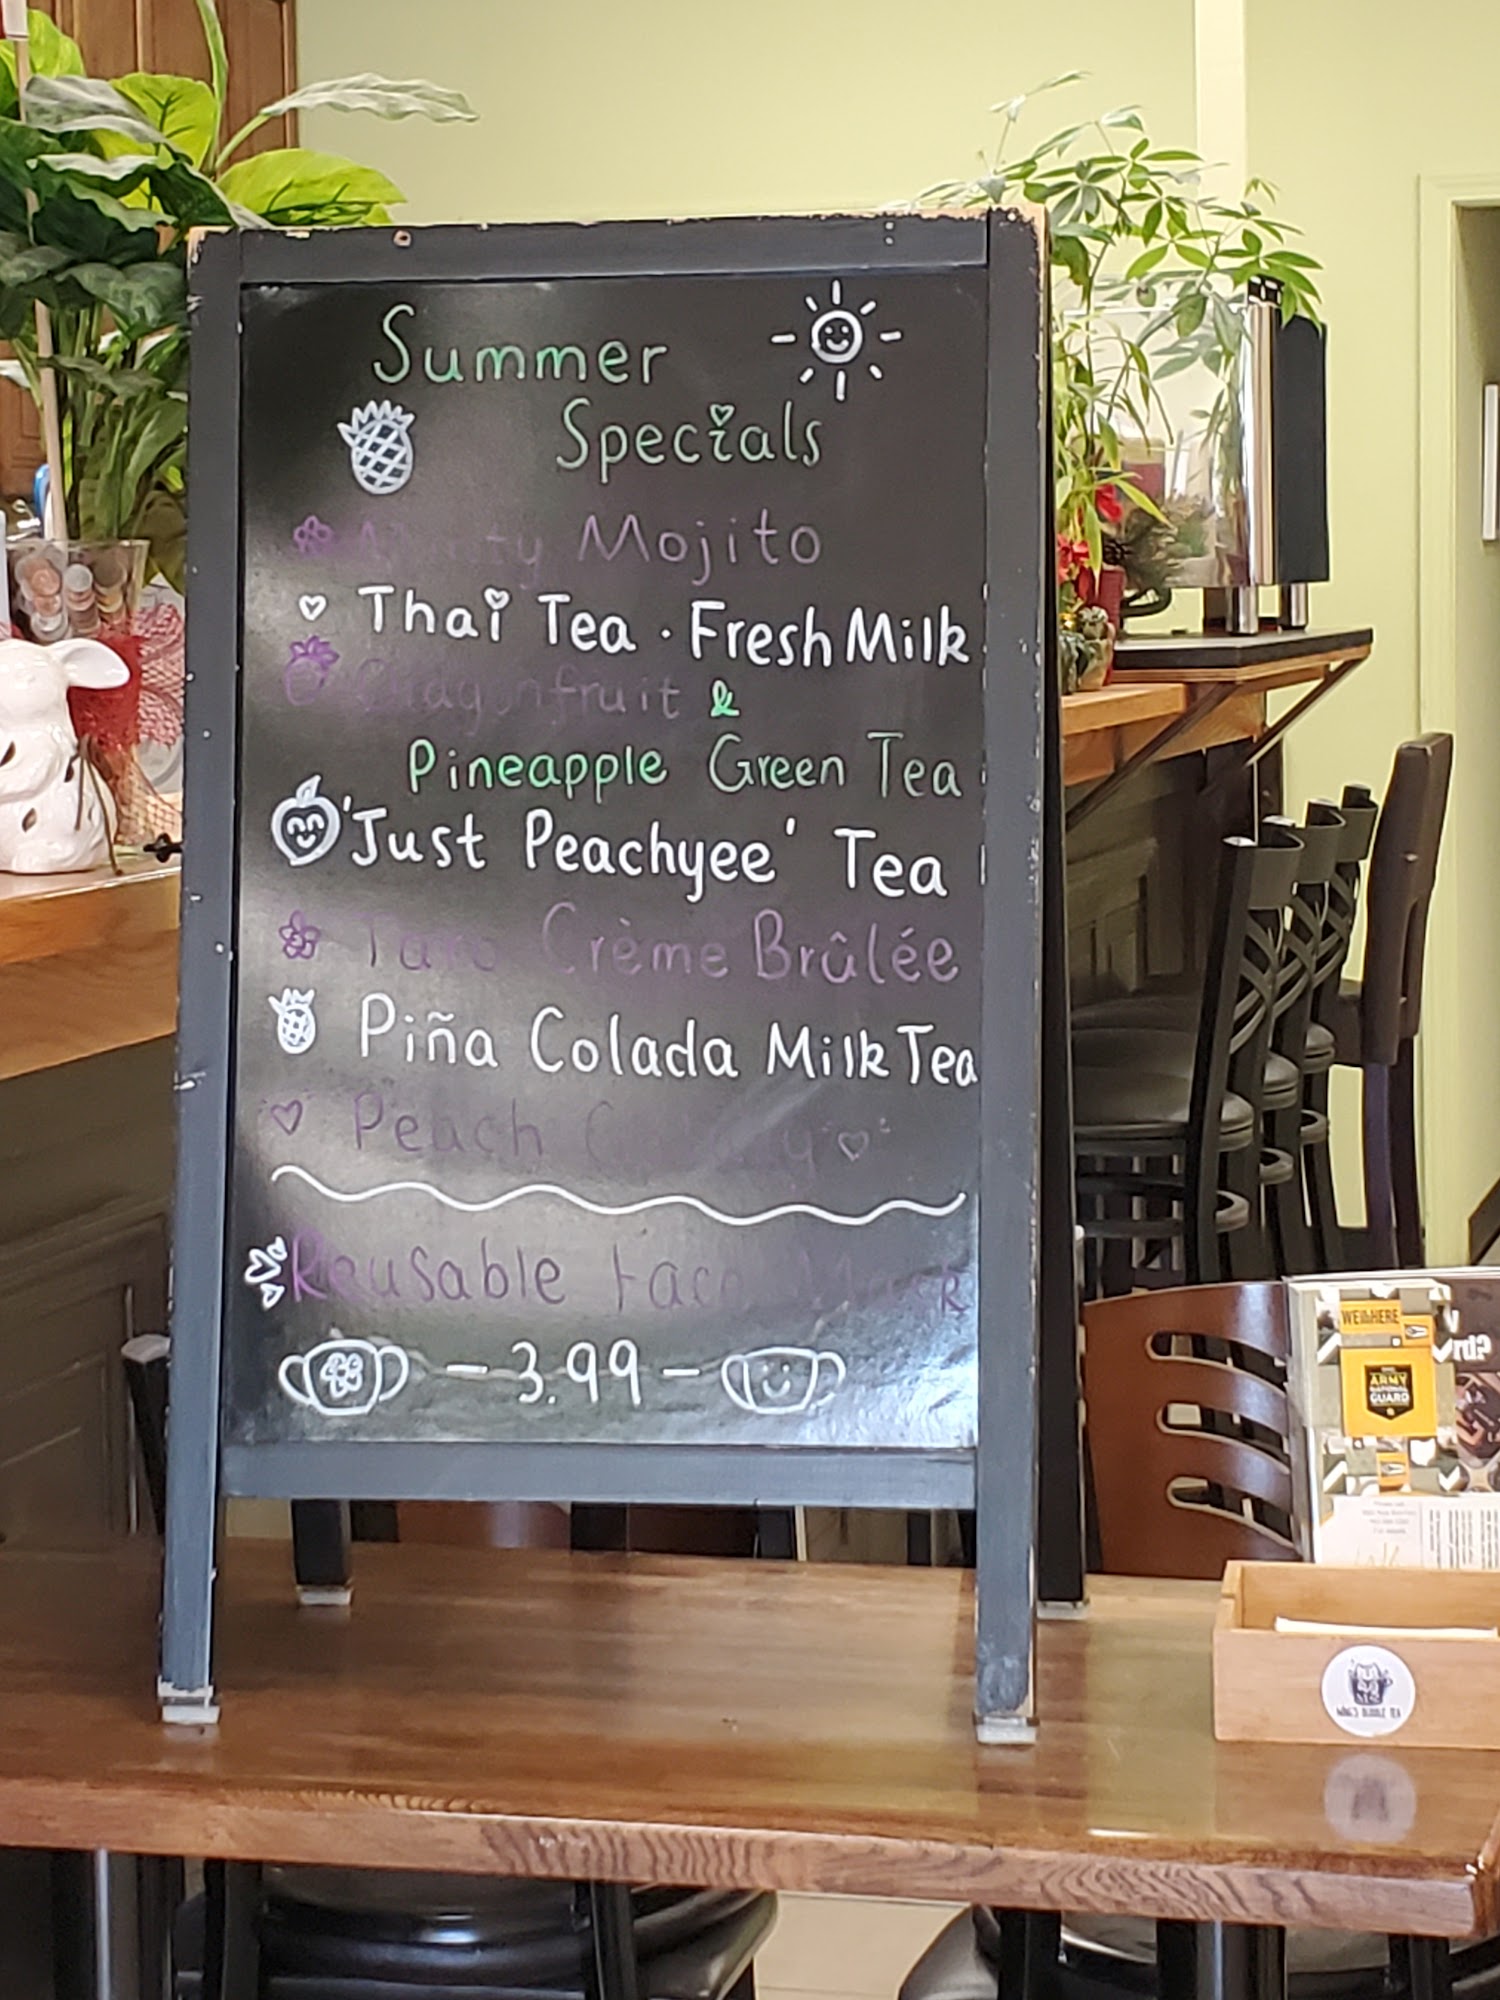 Summer
Specials
Minty Mojito
Thai Tea · Fresh Milk
Dragonfruit &
Pineapple Green Tea
'Just Peachyee' Tea
Taro Crème Brûlée
Piña Colada Milk Tea
Peach
Reusable Face Mask
- 3.99 -
ARMY
NATIONAL
GUARD
rd?